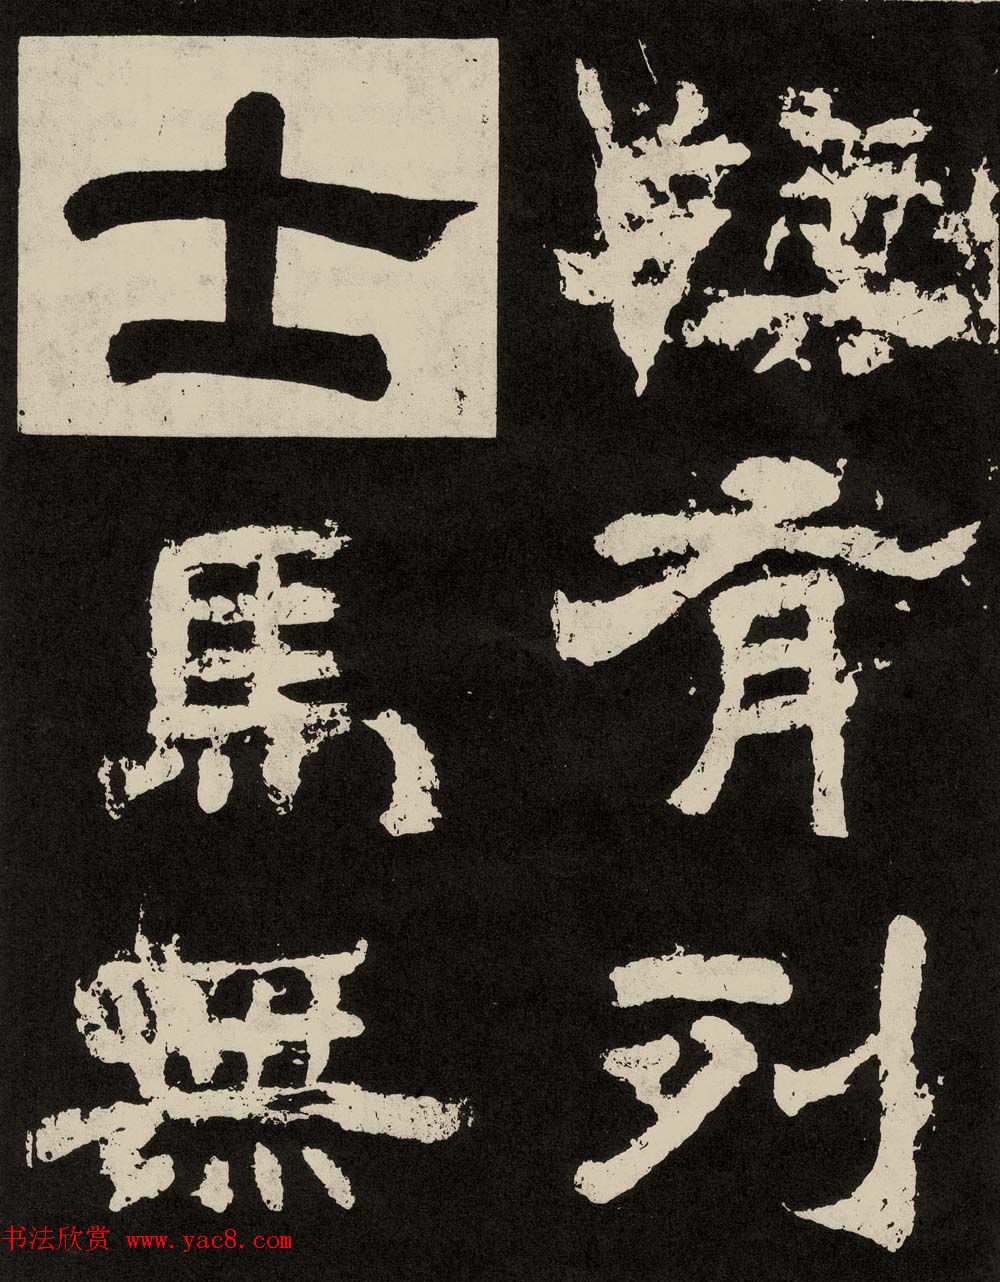 有列
士馬無
书法欣赏 www.yac8.com